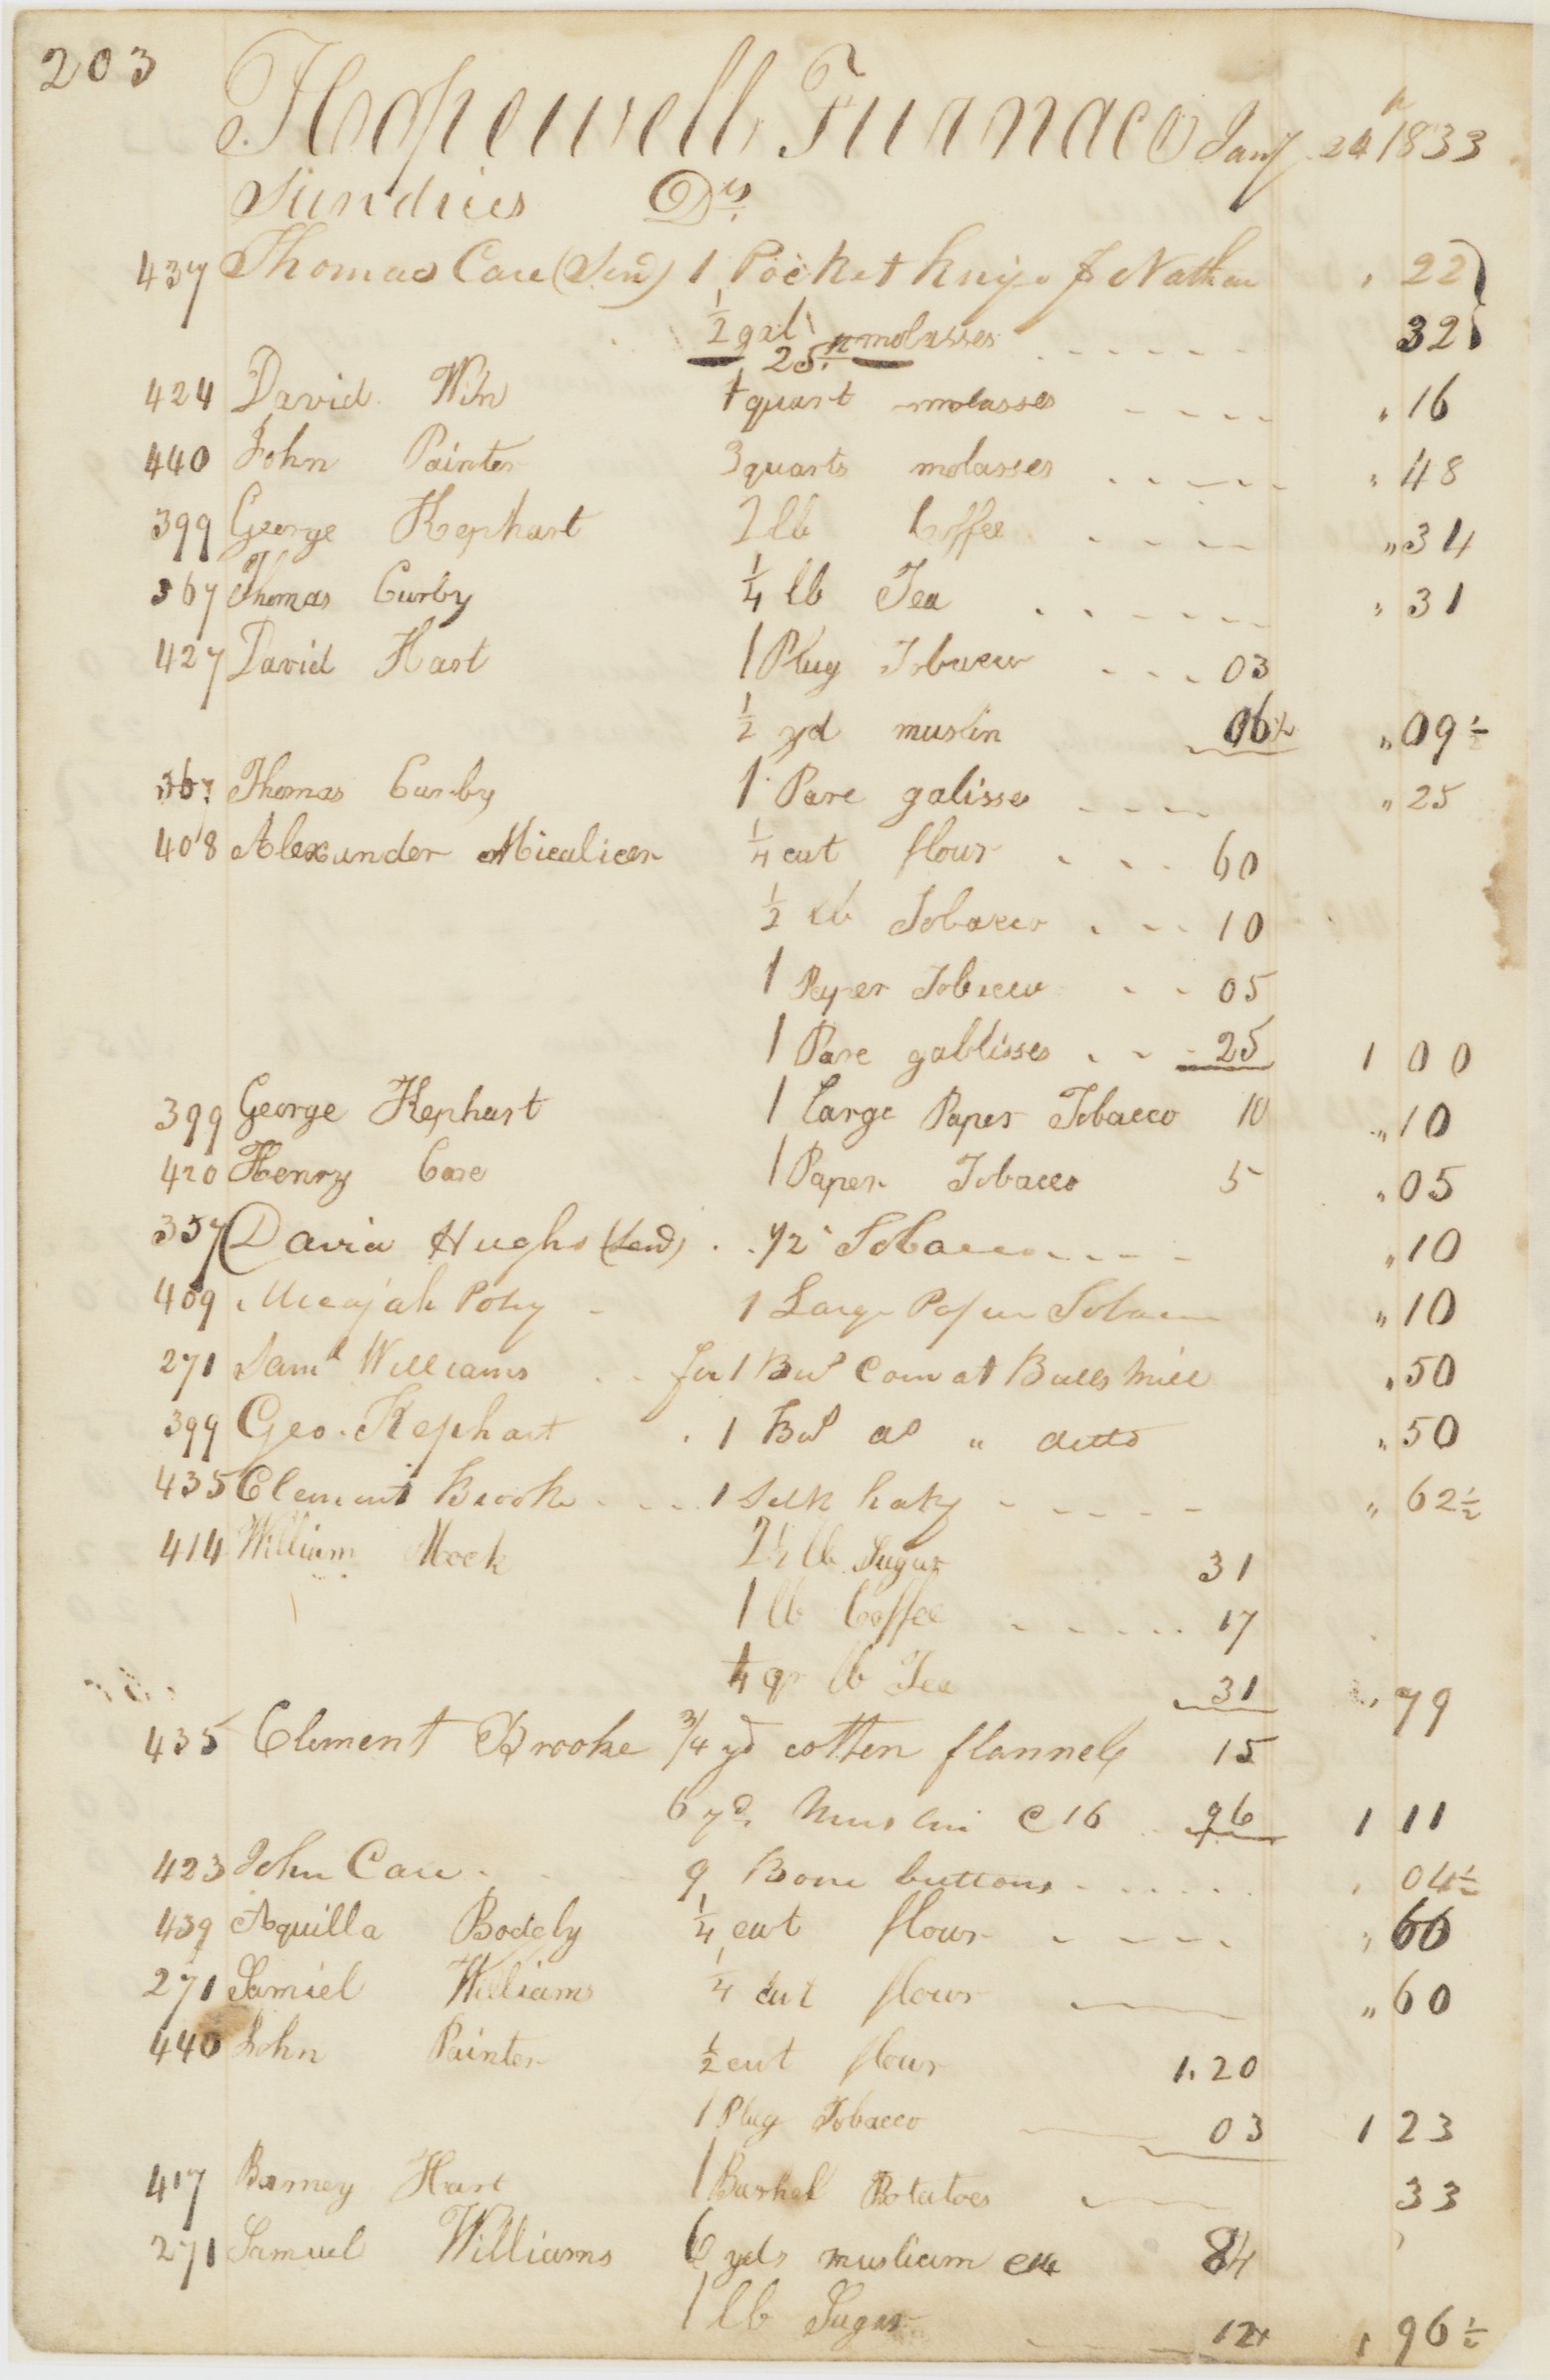 203
Hopewell Furnace Jany 24th 1833
Sundries Drs.
437 Thomas Care (Senr) 1 Pocket knife f Nathan , 22
½ gal molasses - - - - - 32
— 25th —
424 David Wm 1 quart molasses - - - - , 16
440 John Painter 3 quarts molasses - - - - - , 48
399 George Kephart 2 lb Coffee - - - - " 34
367 Thomas Curby ¼ lb Tea - - - - - - , 31
427 David Hart 1 Plug Tobacco - - - 03
½ yd muslin 06½ " 09½
367 Thomas Curby 1 Pare galisses - - - - " 25
408 Alexander Micalicer ¼ cut flour - - - 60
½ lb Tobacco - - - 10
1 Paper Tobacco - - 05
1 Pare gallisses - - - 25 1 00
399 George Kephart 1 large Paper Tobacco 10 " 10
420 Henry Care 1 Paper Tobacco 5 " 05
357 David Hughs (Send) . . ½ Tobacco - - - - " 10
409 Micajah Poley - 1 Large Paper Tobacco " 10
271 Saml Williams - - for 1 Bul Corn at Bulls Mill " 50
399 Geo. Kephart . 1 Bul do " ditto " 50
435 Clement Brooke - - - 1 Silk hakf - - - - - " 62½
414 William Mock 2½ lb Sugar 31
1 lb Coffee - - - - - 17
¼ qr lb Tea 31 " 79
435 Clement Brooke ¾ yd cotten flannel 15
6 yds Muslin @ 16 96 1 11
423 John Care - - - 9 Bone buttons - - - - - - , 04½
439 Aquilla Bodely ¼ cut flour - - - - , 60
271 Samiel Williams ¼ cut flour — " 60
440 John Painter ½ cut flour 1.20
1 Plug Tobacco 03 1 23
417 Barney Hart 1 Bushel Potatoes 33
271 Samuel Williams 6 yds muslieum @ 14 84
1 lb Sugar - - 12½ , 96½